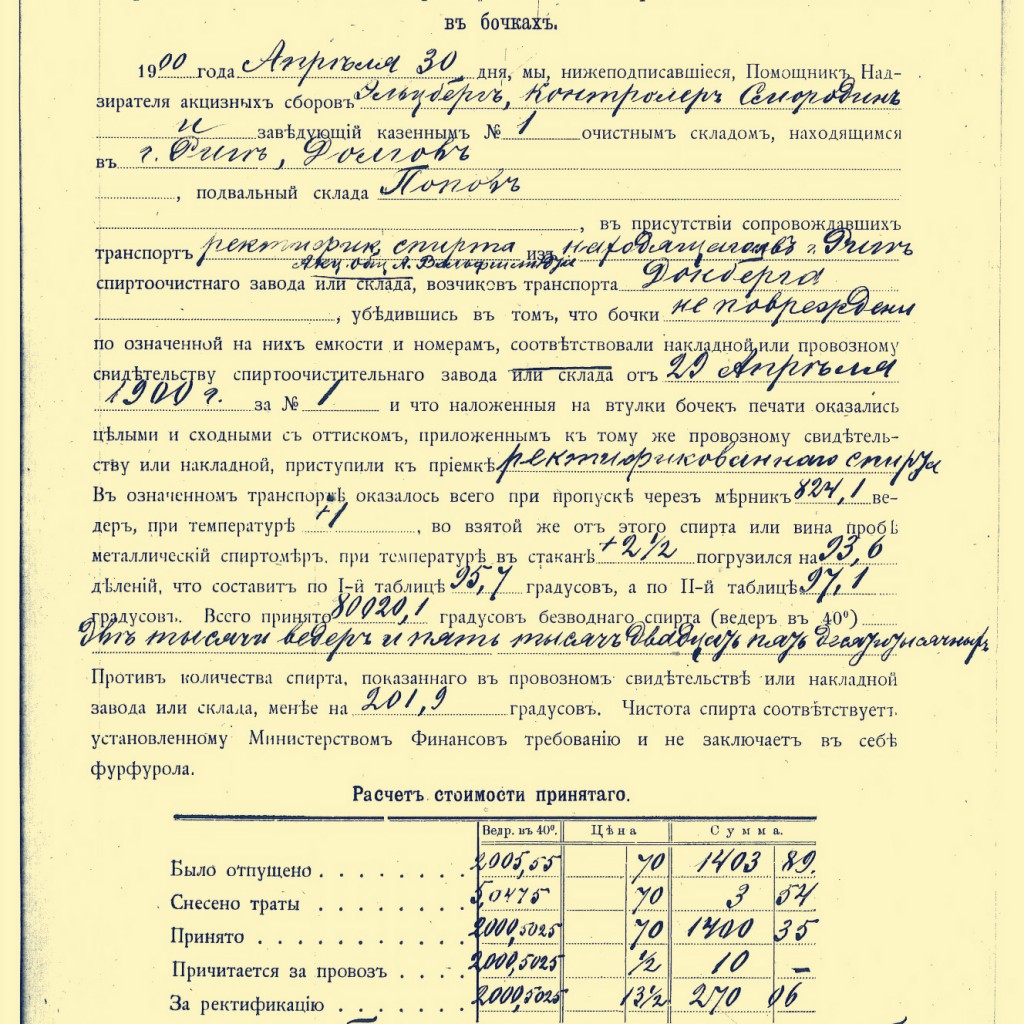 въ бочкахъ.
1900 года Апрѣля 30 дня, мы, нижеподписавшіеся, Помощникъ Над-
зирателя акцизныхъ сборовъ Контролеръ Смородинъ
и завѣдующій казеннымъ № 1 очистнымъ складомъ, находящимся
въ г. Ригѣ, Долговъ
, подвальный склада Поповъ
, въ присутствіи сопровождавшихъ
транспортъ ректифик. спирта изъ находящагося въ г. Ригѣ
Акц. Общ. А. Вольфшмидтъ
спиртоочистнаго завода или склада, возчиковъ транспорта Докберга
, убѣдившись въ томъ, что бочки не повреждены
по означенной на нихъ емкости и номерамъ, соотвѣтствовали накладной или провозному
свидѣтельству спиртоочистительнаго завода или склада отъ 29 Апрѣля
1900 г. за № 1 и что наложенныя на втулки бочекъ печати оказались
цѣлыми и сходными съ оттискомъ, приложеннымъ къ тому же провозному свидѣтель-
ству или накладной, приступили къ пріемкѣ ректификованнаго спирта
Въ означенномъ транспортѣ оказалось всего при пропускѣ черезъ мѣрникъ 824,1 ве-
деръ, при температурѣ +1, во взятой же отъ этого спирта или вина пробѣ
металлическій спиртомѣръ, при температурѣ въ стаканѣ +2 1/2 погрузился на 93,6
дѣленій, что составитъ по I-й таблицѣ 95,7 градусовъ, а по II-й таблицѣ 97,1
градусовъ. Всего принято 80020,1 градусовъ безводнаго спирта (ведеръ въ 40°)
Двѣ тысячи ведеръ и пять тысячъ двадцать пять десятитысячныхъ
Противъ количества спирта, показаннаго въ провозномъ свидѣтельствѣ или накладной
завода или склада, менѣе на 201,9 градусовъ. Чистота спирта соотвѣтствуетъ
установленному Министерствомъ Финансовъ требованію и не заключаетъ въ себѣ
фурфурола.
Расчетъ стоимости принятаго.
Ведр. въ 40°. Цѣна Сумма.
Было отпущено 2005,55 70 1403 89.
Снесено траты 5,0475 70 3 54
Принято 2000,5025 70 1400 35
Причитается за провозъ 2000,5025 1/2 10 –
За ректификацію 2000,5025 13 1/2 270 06